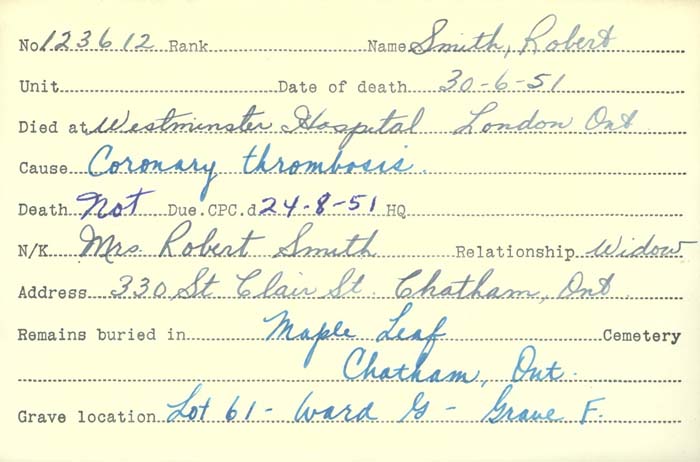 No. 123612 Rank Name Smith, Robert
Unit Date of death 30-6-51
Died at Westminster Hospital London Ont
Cause Coronary thrombosis.
Death Not Due.CPC.d 24-8-51 HQ
N/K Mrs. Robert Smith Relationship Widow
Address 330 St Clair St. Chatham, Ont
Remains buried in Maple Leaf Cemetery
Chatham, Ont.
Grave location Lot 61 - Ward G - Grave F.